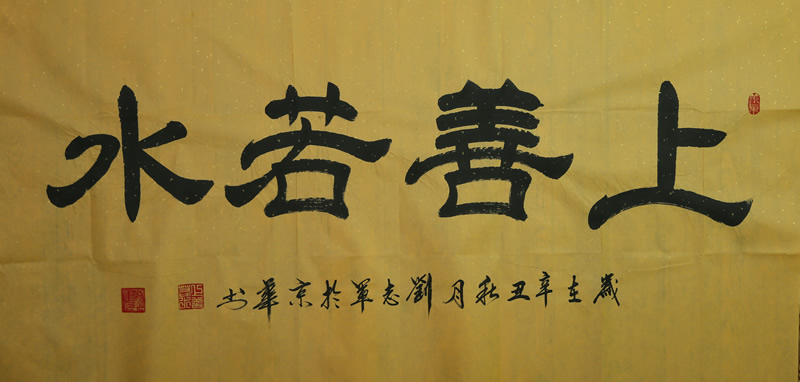 上善若水
歲在辛丑秋月劉志軍於京華书